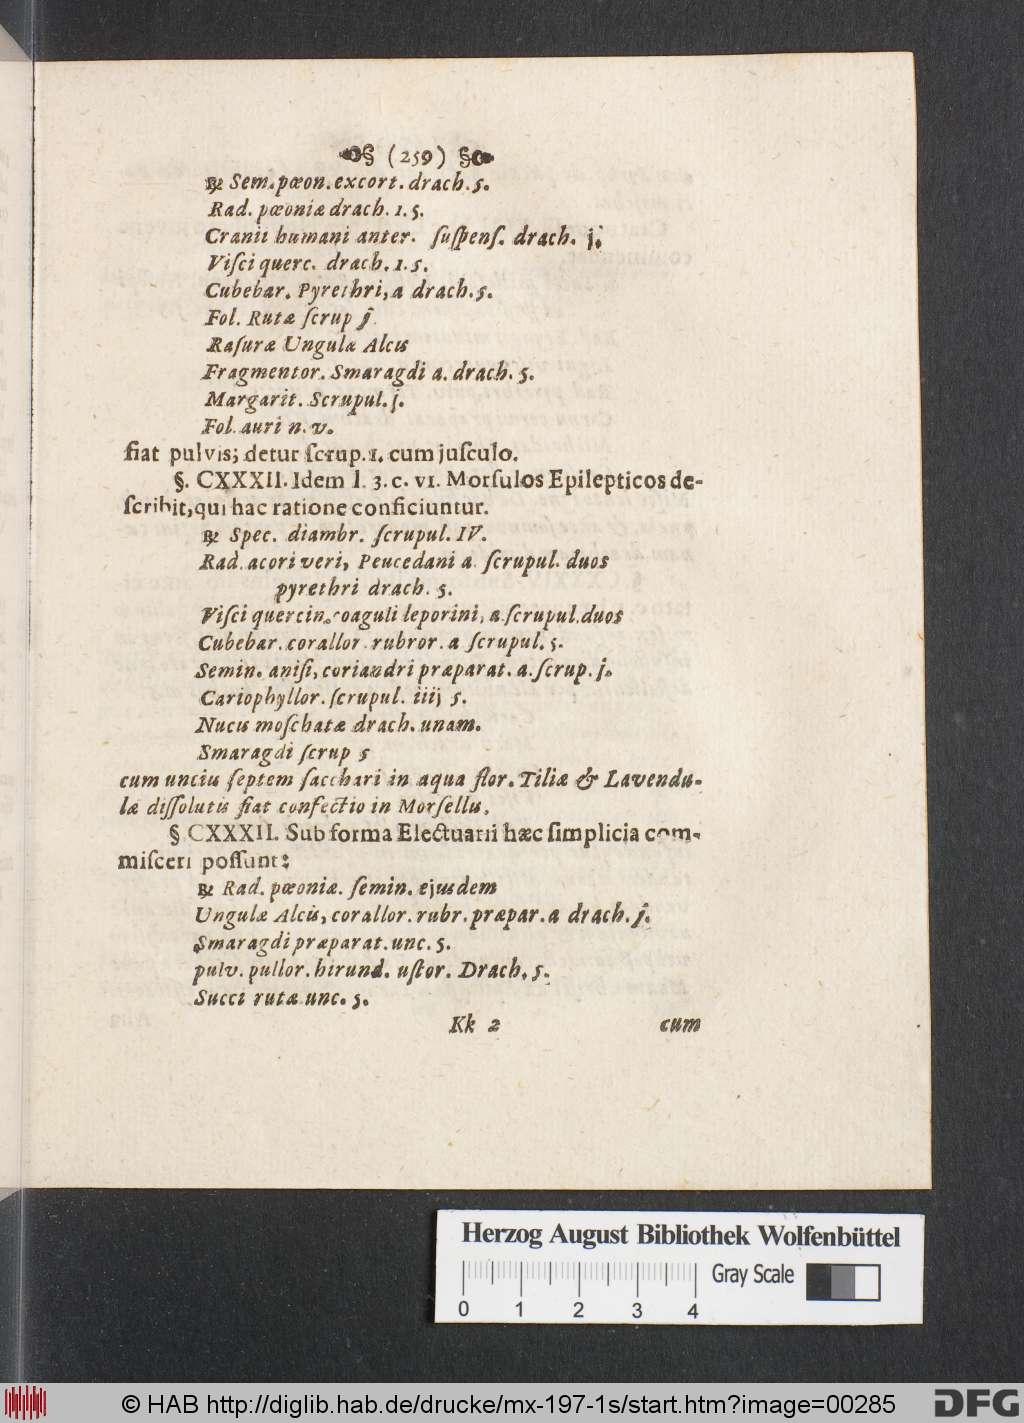 § (259) §
℞ Sem. pœon. excort. drach. 5.
Rad. pœoniæ drach. 1. 5.
Cranii humani anter. ſuſpenſ. drach. j.
Viſci querc. drach. 1. 5.
Cubebar. Pyrethri, a drach. 5.
Fol. Rutæ ſcrup j
Raſuræ Ungulæ Alcis
Fragmentor. Smaragdi a. drach. 5.
Margarit. Scrupul. j.
Fol. auri n. v.
fiat pulvis; detur ſcrup. 1. cum juſculo.
§. CXXXII. Idem l. 3. c. VI. Morſulos Epilepticos de-
ſcribit, qui hac ratione conficiuntur.
℞ Spec. diambr. ſcrupul. IV.
Rad. acori veri, Peucedani a. ſcrupul. duos
pyrethri drach. 5.
Viſci quercin. coaguli leporini, a. ſcrupul. duos
Cubebar. corallor. rubror. a ſcrupul. 5.
Semin. aniſi, coriandri præparat. a. ſcrup. j.
Cariophyllor. ſcrupul. iiij 5.
Nucis moſchatæ drach. unam.
Smaragdi ſcrup 5
cum unciis ſeptem ſacchari in aqua flor. Tiliæ & Lavendu-
læ diſſolutis fiat confectio in Morſellis,
§ CXXXII. Sub forma Electuarii hæc ſimplicia com-
miſceri poſſunt:
℞ Rad. pœoniæ. ſemin. ejusdem
Ungulæ Alcis, corallor. rubr. præpar. a drach. j.
Smaragdi præparat. unc. 5.
pulv. pullor. hirund. uſtor. Drach. 5.
Succi rutæ unc. 5.
Kk 2 cum
Herzog August Bibliothek Wolfenbüttel
Gray Scale
0 1 2 3 4
© HAB http://diglib.hab.de/drucke/mx-197-1s/start.htm?image=00285
DFG